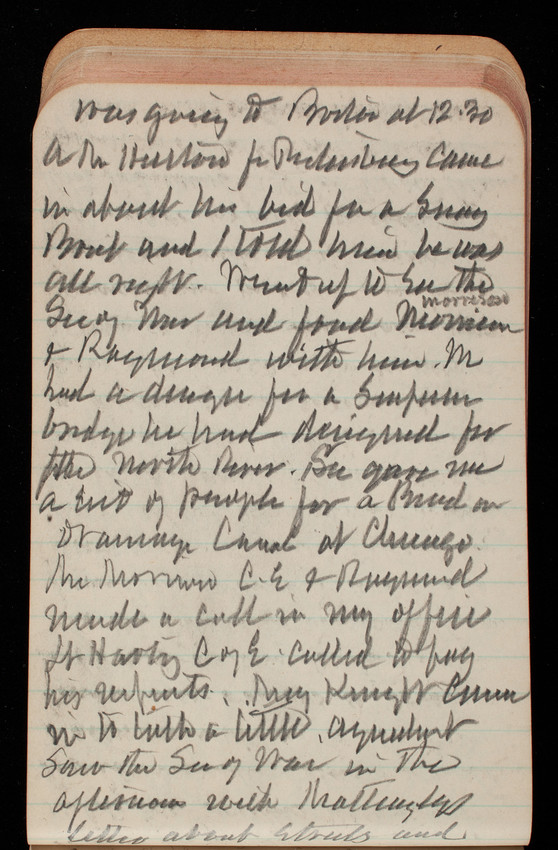 was going to Boston at 12.30
A Mr Huston fr Pittsburg came
in about his bid for a Snag
Boat and I told him he was
all right. Went up to See the
Secy War and found Morrison
morrison
& Raymond with him. M
had a design for a Suspension
bridge he had designed for
the North River. Sec gave me
a list of people for a Board on
Drainage Canal at Chicago.
Mr Morrison C.E. & Raymond
made a call in my office
Lt Harts C of E called to pay
his respects. Knight came
in to talk a little.
Saw the Secy of War in the
afternoon with Mattinglys
letter about Streets and